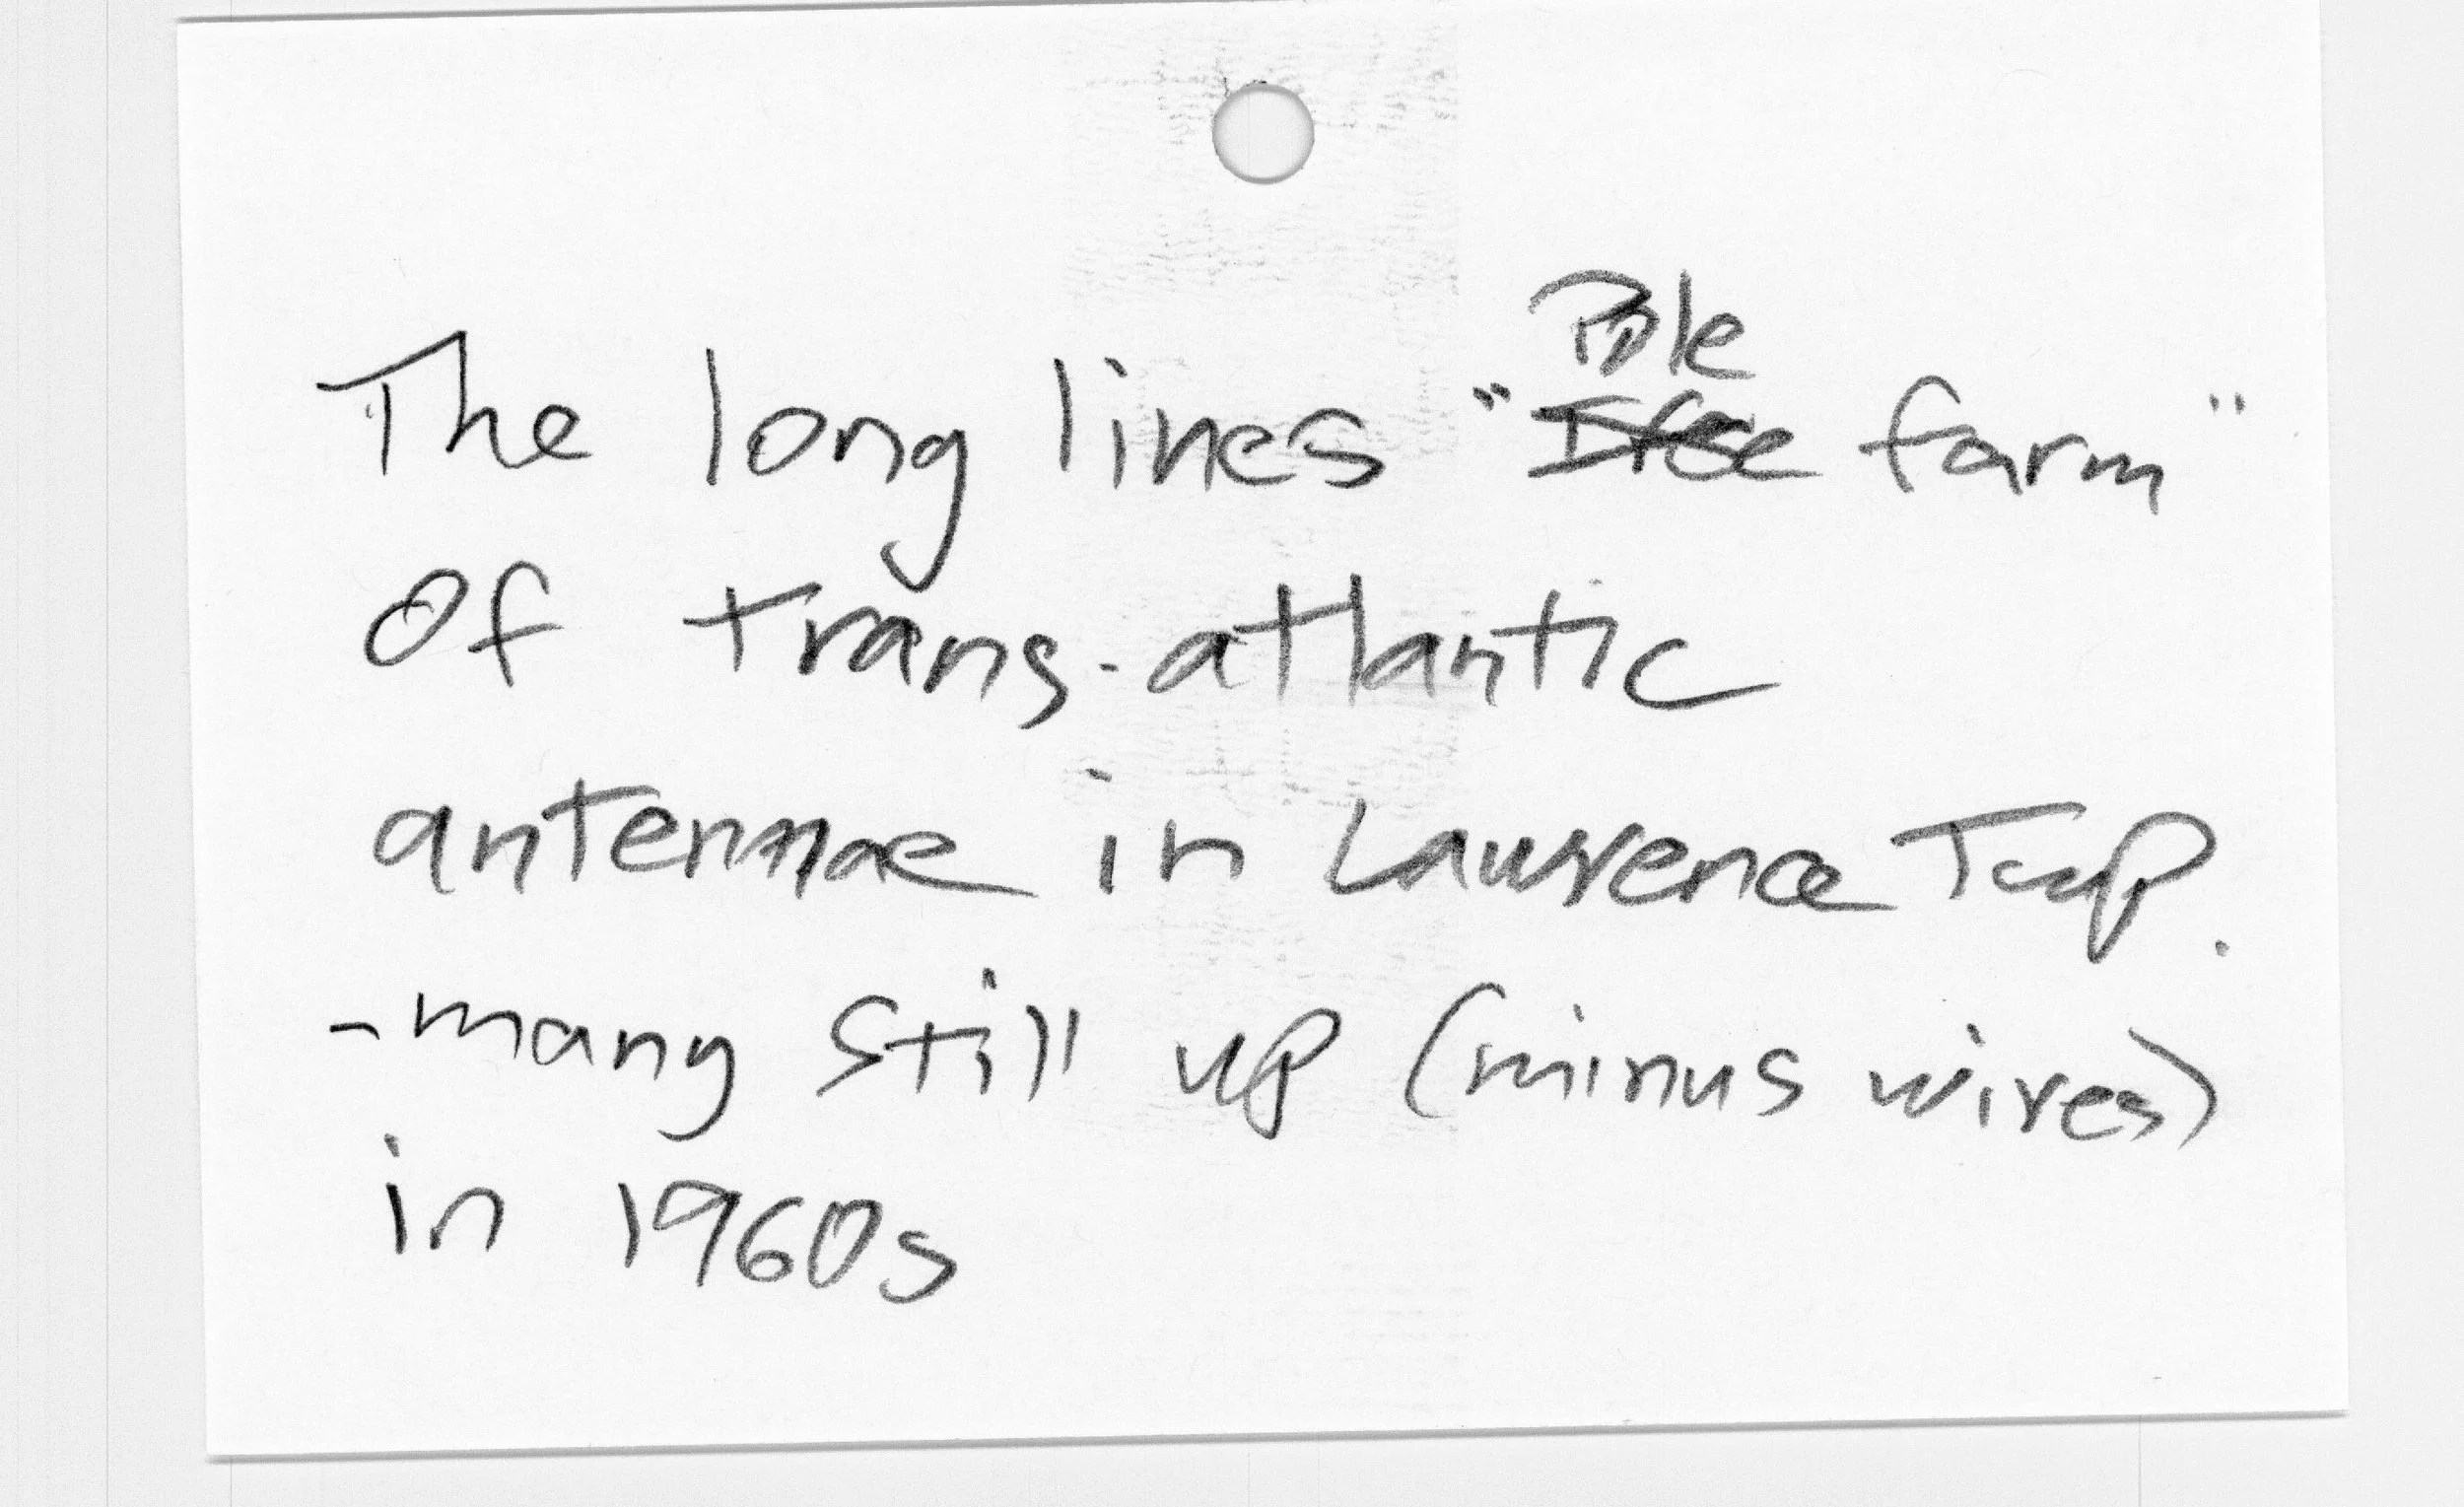 The long lines "Pole farm"
of trans-atlantic
antennae in Lawrence Twp.
- many still up (minus wires)
in 1960s